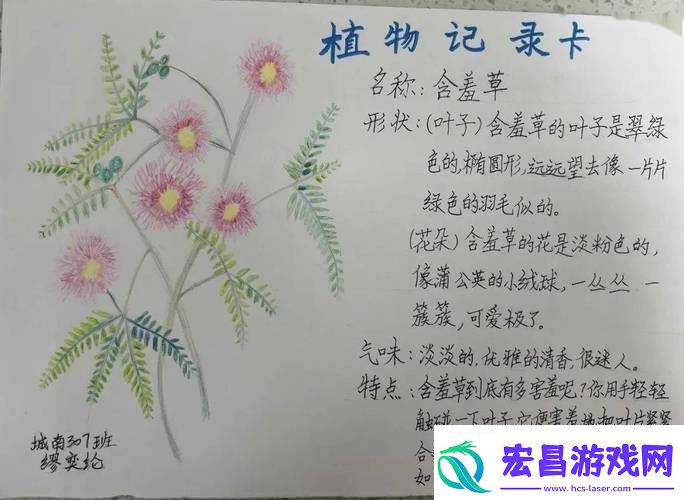 植物记录卡
名称：含羞草
形状：(叶子)含羞草的叶子是翠绿
色的,椭圆形,远远望去像一片片
绿色的羽毛似的。
(花朵)含羞草的花是淡粉色的,
像蒲公英的小绒球,一丛丛一
簇簇,可爱极了。
气味：淡淡的,优雅的清香,很迷人。
特点：含羞草到底有多害羞呢?你用手轻轻
触碰一下叶子,它便害羞地把叶片紧紧
合
如
城南307班
缪奕纶
宏昌游戏网
www.hcs-laser.com